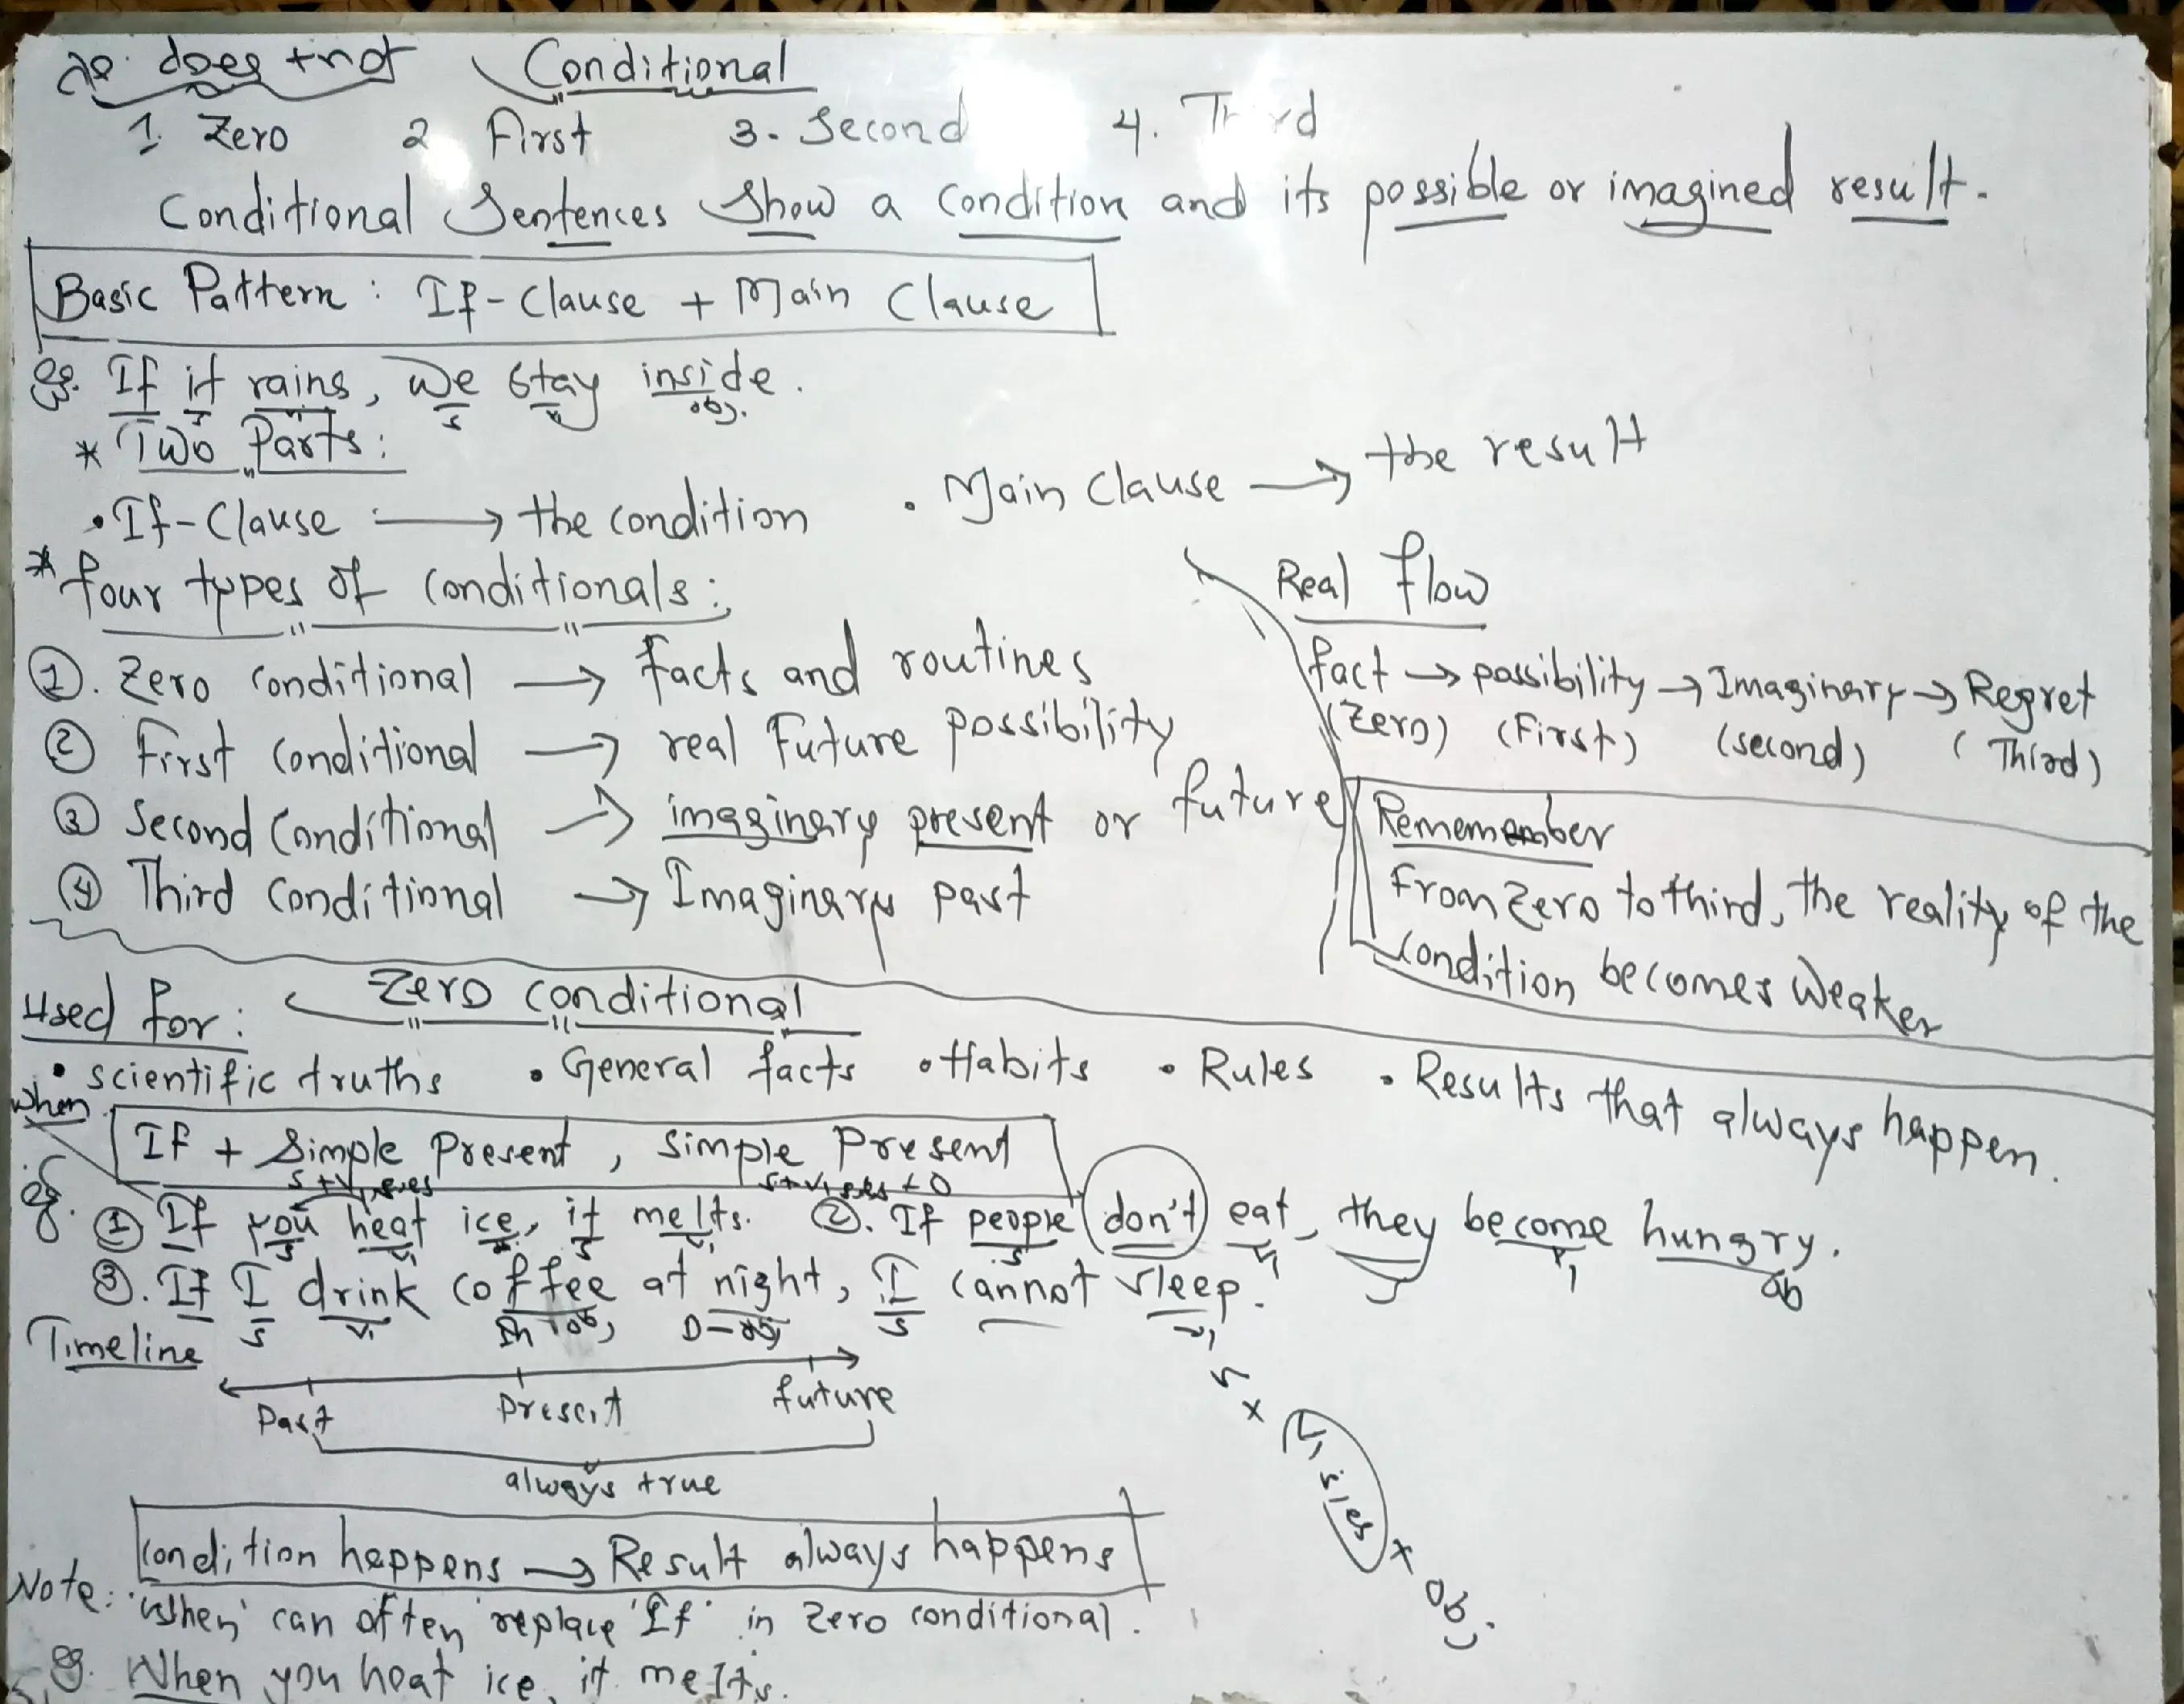 does + not Conditional
1. Zero 2 First 3. Second 4. Third
Conditional Sentences Show a condition and its possible or imagined result.
Basic Pattern : If - Clause + Main Clause
eg. If it rains, we stay inside.
s v s v obj.
* Two Parts:
• If - Clause → the condition • Main Clause → the result
* four types of conditionals:
①. Zero conditional → facts and routines
② First conditional → real Future possibility
③ Second conditional → imaginary present or future
④ Third conditional → Imaginary past
Real flow
fact → possibility → Imaginary → Regret
(Zero) (First) (second) (Third)
Rememember
From zero to third, the reality of the
condition becomes weaker
Zero conditional
Used for:
• scientific truths • General facts • Habits • Rules • Results that always happen.
When
If + Simple Present, simple Present
s + v, s/es s + v, s/es + O
eg. ① If you heat ice, it melts. ②. If people don't eat, they become hungry.
③. If I drink coffee at night, I cannot sleep.
Timeline
Past Present future
always true
s + v, s/es + ob.
Condition happens → Result always happens
Note: 'When' can often replace 'If' in Zero conditional.
eg. When you heat ice, it melts.